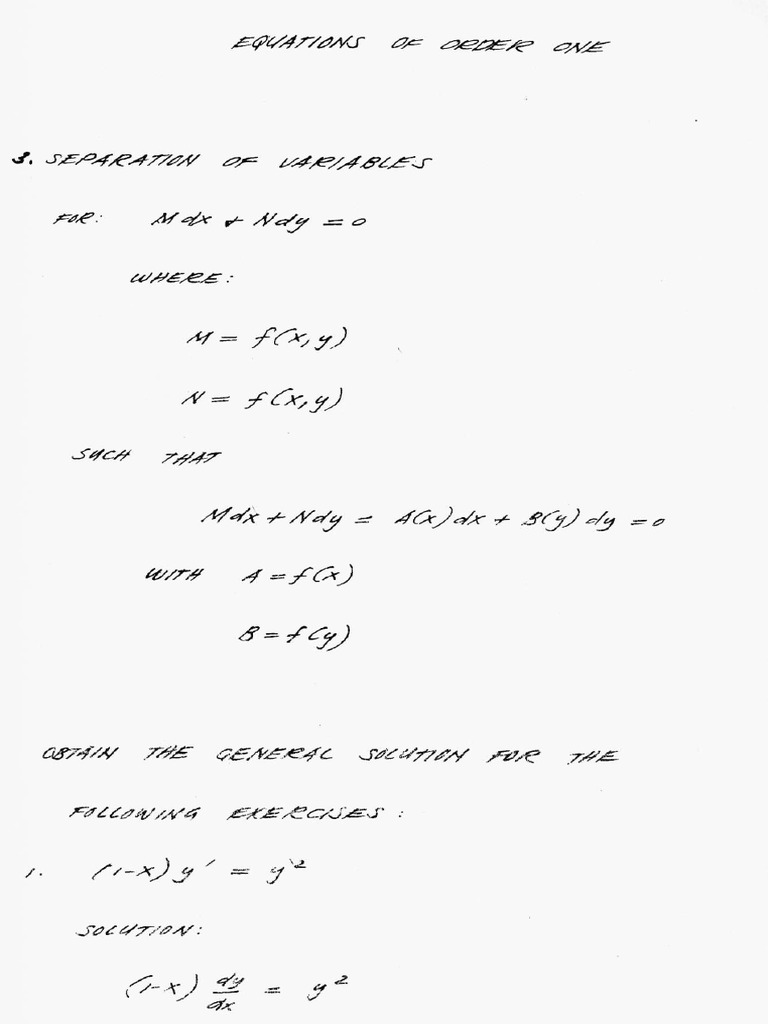 EQUATIONS OF ORDER ONE
3. SEPARATION OF VARIABLES
FOR: Mdx + Ndy = 0
WHERE:
M = f(x,y)
N = f(x,y)
SUCH THAT
Mdx + Ndy = A(x)dx + B(y)dy = 0
WITH A = f(x)
B = f(y)
OBTAIN THE GENERAL SOLUTION FOR THE
FOLLOWING EXERCISES:
1. (1-x)y' = y²
SOLUTION:
(1-x) dy/dx = y²